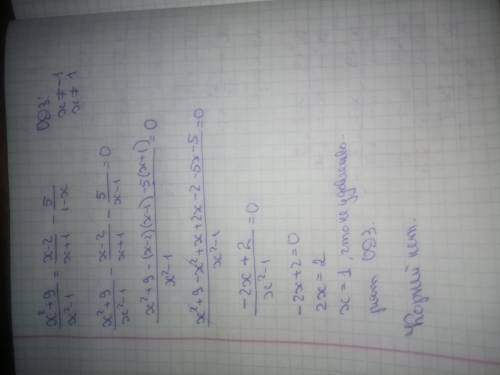 x²+9/x²-1 = x-2/x+1 - 5/1-x
ОДЗ:
x ≠ -1
x ≠ 1
x²+9/x²-1 - x-2/x+1 - 5/x-1 = 0
x²+9-(x-2)(x-1)-5(x+1)/x²-1 = 0
x²+9-x²+x+2x-2-5x-5/x²-1 = 0
-2x+2/x²-1 = 0
-2x+2=0
2x=2
x=1, что не удовлетво-
ряет ОДЗ.
Корней нет.